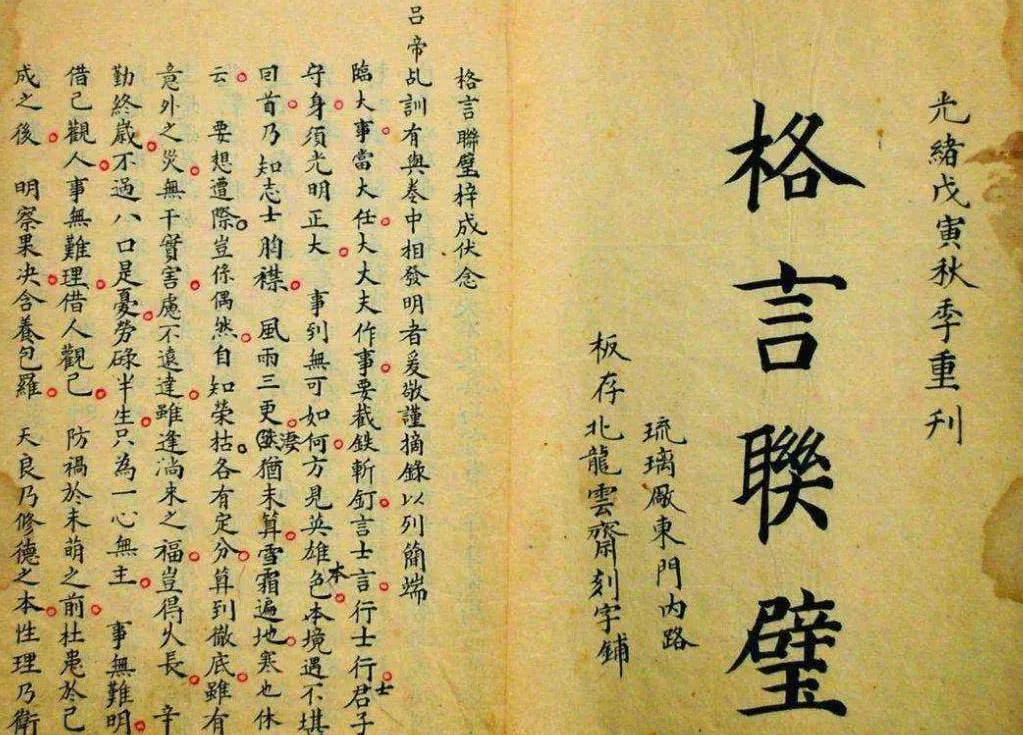 光緒戊寅秋季重刊
格言聯璧
琉璃厰東門內路
板存北龍雲齋刻字鋪
格言聯璧梓成伏念
吕帝乩訓有與卷中相發明者爰敬謹摘錄以列簡端
臨大事當大任大丈夫作事要截鉄斬釘言士言行士行君子士
守身須光明正大 事到無可如何方見英雄色本本境遇不堪
回首乃知志士胸襟 風雨三更凄猶未算雪霜遍地寒也休
云 要想遭際豈係偶然自知榮枯各有定分算到徹底雖有
意外之災無干實害慮不遠達雖逢淌来之福豈得久長 辛
勤終歲不過八口是憂勞碌半生只為一心無主 事無難明
借己觀人事無難理借人觀己 防禍於未萌之前杜患於己
成之後 明察果决含養包羅 天良乃修德之本性理乃衛